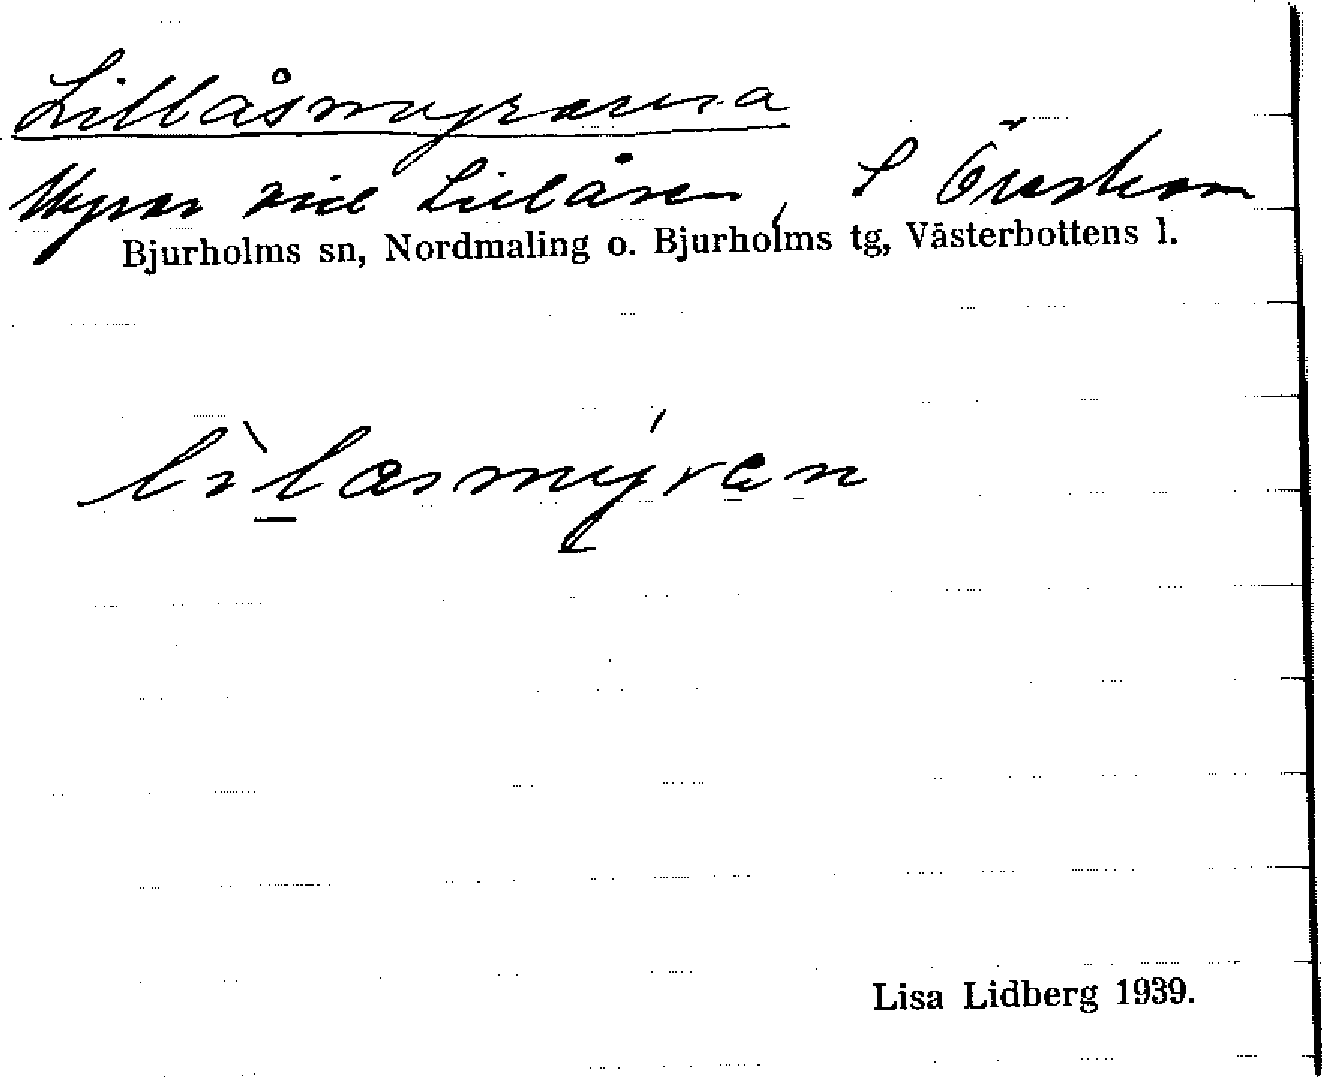 Lillåsmyrarna
Myrar vid Lillåsen, S Örträsk
Bjurholms sn, Nordmaling o. Bjurholms tg, Västerbottens l.
lìlasmýran
Lisa Lidberg 1939.